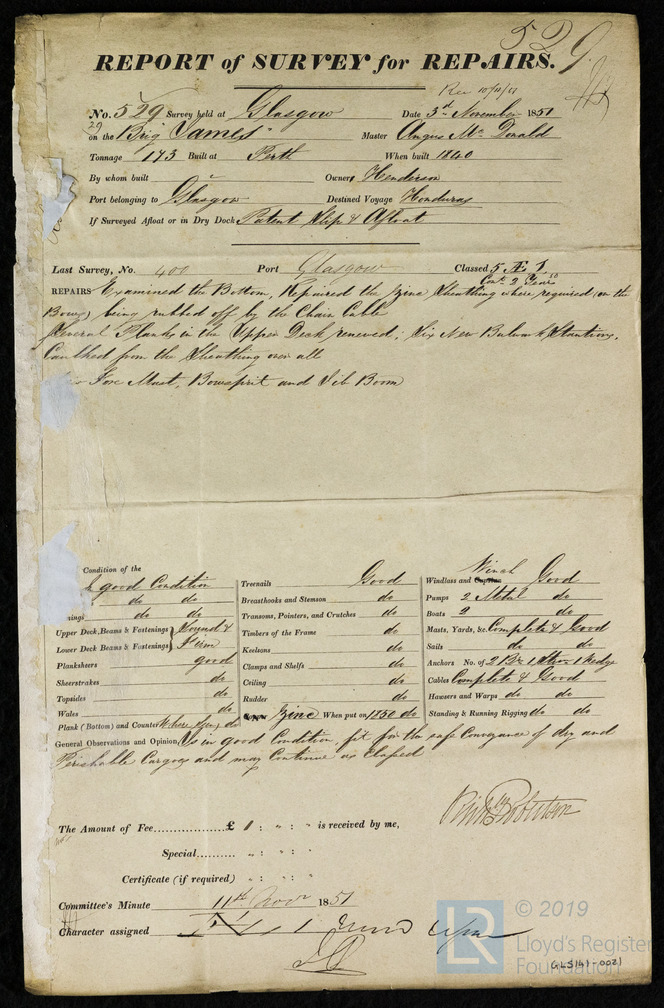 529
REPORT of SURVEY for REPAIRS.
Rec 10/11/51
No. 529 Survey held at Glasgow Date 3rd November 1851
29
on the Brig "James" Master Angus Mc Donald
Tonnage 173 Built at Perth When built 1840
By whom built Owner Henderson
Port belonging to Glasgow Destined Voyage Honduras
If Surveyed Afloat or in Dry Dock Patent Slip & Afloat
Last Survey, No. 400 Port Glasgow Classed 5 Æ 1
Cont. 2 Years
REPAIRS Examined the Bottom, Repaired the Zinc Sheathing where required (on the
Bows) being rubbed off by the Chain Cable
Several Planks in the Upper Deck renewed, Six New Bulwark Stantions,
Caulked from the Sheathing over all
Fore Mast, Bowsprit and Jib Boom
Condition of the
good Condition
do do
nings do do
Upper Deck, Beams & Fastenings } Sound &
Lower Deck Beams & Fastenings } Firm
Planksheers good
Sheerstrakes do
Topsides do
Wales do
Plank (Bottom) and Counter Where seen do
Treenails Good
Breasthooks and Stemson do
Transoms, Pointers, and Crutches do
Timbers of the Frame do
Keelsons do
Clamps and Shelfs do
Ceiling do
Rudder do
Zinc When put on 1850 do
Winch
Windlass and Capstan Good
Pumps 2 Metal do
Boats 2 do
Masts, Yards, &c. Complete & Good
Sails do do
Anchors No. of 2 Br 1 Stream 1 Kedge
Cables Complete & Good
Hawsers and Warps do do
Standing & Running Rigging do do
General Observations and Opinion Is in good Condition, fit for the safe Conveyance of dry and
Perishable Cargoes and may Continue as Classed
The Amount of Fee................£ is received by me,
Special..........
Certificate (if required)
Committee's Minute 11th Novr 1851
Character assigned
© 2019
LR
Lloyd's Register
Foundation
GLS141-0021